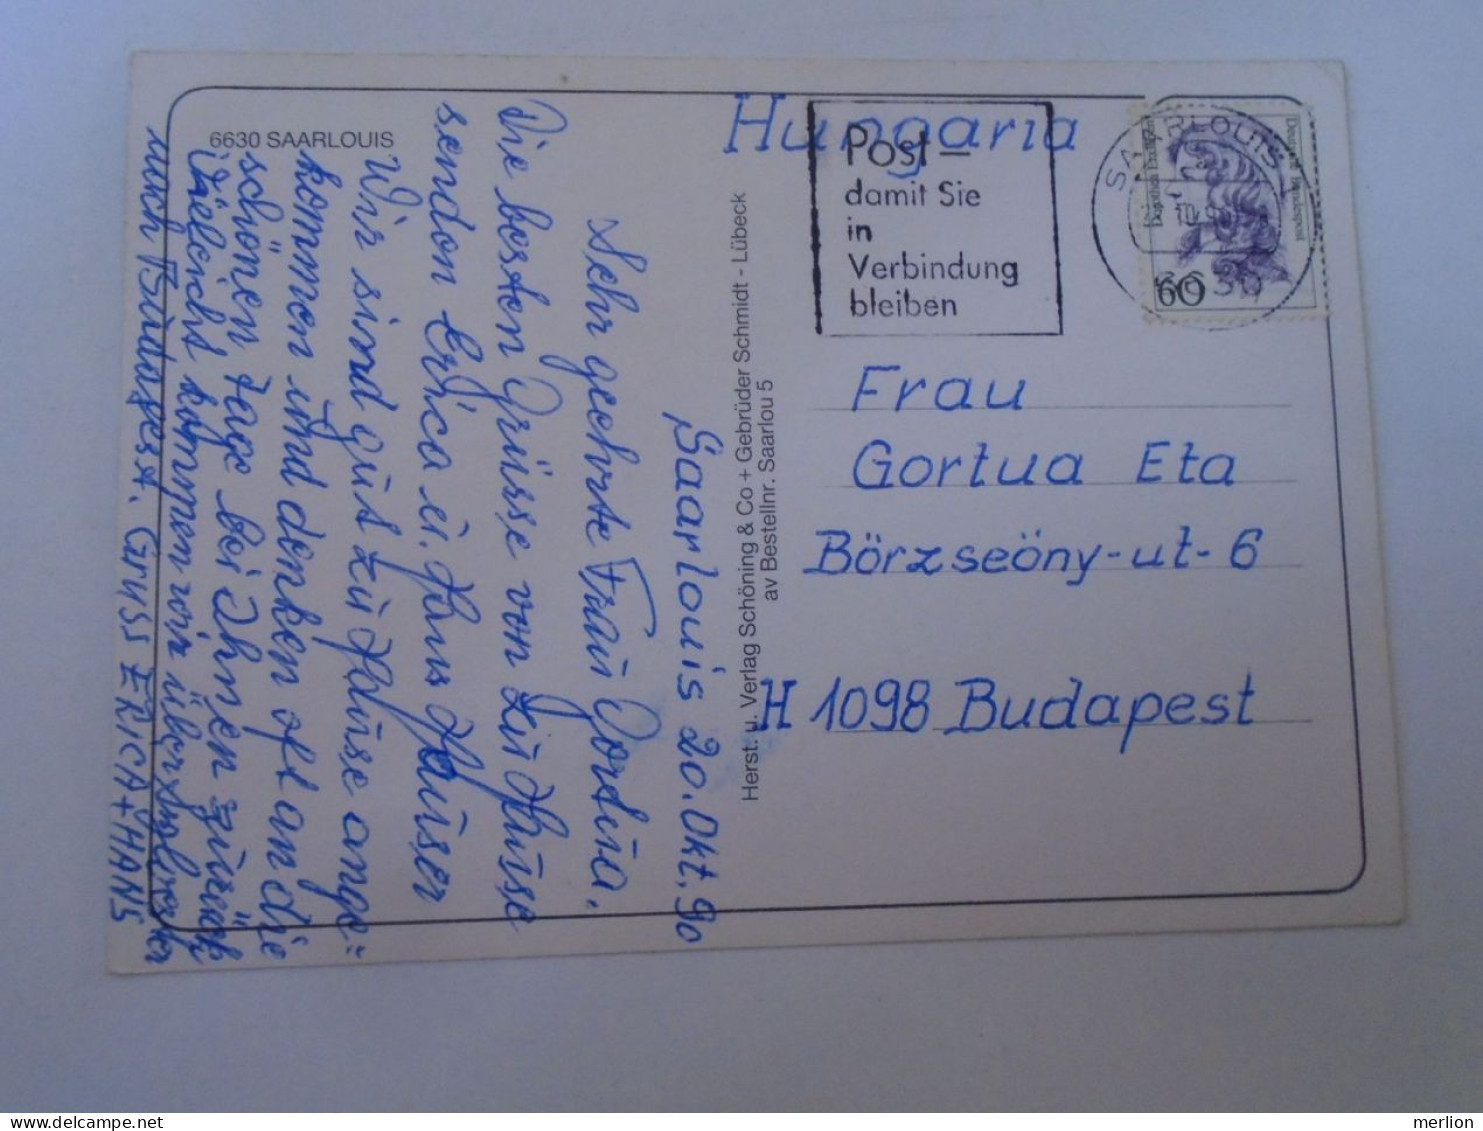 6630 SAARLOUIS
Saarlouis 20. Okt. 90
Sehr geehrte Frau Gortua.
Die besten Grüsse von zu Hause
senden Erica u. Hans Hauser
Wir sind gut zu Hause ange=
kommen und denken oft an die
schönen Tage bei Ihnen zurück
Vieleicht kommen wir über
nach Budapest. Gruss ERICA + HANS
Herst. u. Verlag Schöning & Co + Gebrüder Schmidt - Lübeck
av Bestellnr. Saarlou 5
Hungaria
Post –
damit Sie
in
Verbindung
bleiben
SAARLOUIS 1
Deutsche Bundespost
60
Frau
Gortua Eta
Börzseöny-ut-6
H 1098 Budapest
merlion